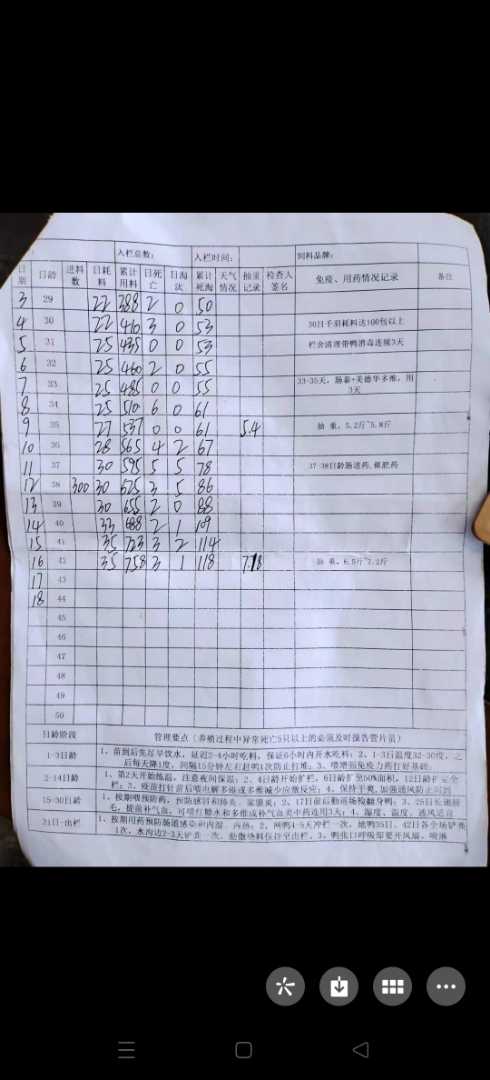 入栏总数： 入栏时间： 饲料品牌：
日期 日龄 进料数 日耗料 累计用料 日死亡 日淘汰 累计死淘 天气情况 抽重记录 检查人签名 免疫、用药情况记录 备注
3 29 22 388 2 0 50
4 30 22 410 3 0 53 30日千羽耗料达100包以上
5 31 25 435 0 0 53 栏舍清理带鸭消毒连续3天
6 32 25 460 2 0 55
7 33 25 485 0 0 55 33-35天，肠泰+美德华多维，用3天
8 34 25 510 6 0 61
9 35 27 537 0 0 61 5.4 抽重，5.2斤~5.8斤
10 36 28 565 4 2 67
11 37 30 595 5 5 78 37-38日龄肠道药，催肥药
12 38 300 30 625 3 5 86
13 39 30 655 2 0 88
14 40 33 688 2 1 109
15 41 35 723 3 2 114
16 42 35 758 3 1 118 7.18 抽重，6.5斤~7.2斤
17 43
18 44
45
46
47
48
49
50
日龄阶段 管理要点（养殖过程中异常死亡5只以上的必须及时报告管片员）
1-3日龄 1、苗到后先尽早饮水，延迟2-4小时吃料，保证6小时内开水吃料；2、1-3日温度32-30度，之后每天降1度，间隔15分钟左右赶鸭1次防止打堆；3、喂增强免疫力药打好基础。
2-14日龄 1、第2天开始炼温，注意夜间保温；2、4日龄开始扩栏，6日龄扩至50%面积，12日龄扩完全栏；3、疫苗打针前后喂电解多维或多维减少应激反应；4、保持干爽，加强通风防止
15-30日龄 1、按期喂预防药，预防感冒和肺炎、浆膜炎；2、17日前后勤巡场捡翻身鸭；3、25日长翅膀毛，提前补气血，可喂红糖水和多维或补气血类中药连用3天；4、湿度、温度、通风适宜
31日-出栏 1、按期用药预防肠道感染